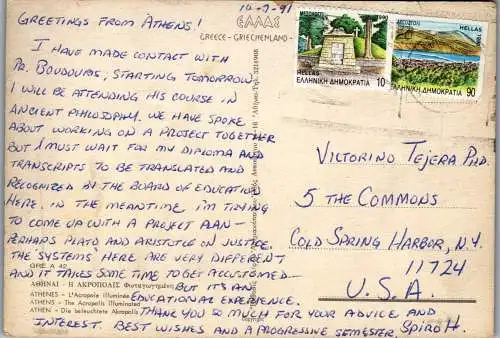 14-2-91
GREETINGS FROM ATHENS!
I HAVE MADE CONTACT WITH
DR. BOUDOURIS, STARTING TOMORROW
I WILL BE ATTENDING HIS COURSE IN
ANCIENT PHILOSOPHY. WE HAVE SPOKE
ABOUT WORKING ON A PROJECT TOGETHER
BUT I MUST WAIT FOR MY DIPLOMA AND
TRANSCRIPTS TO BE TRANSLATED AND
RECOGNIZED BY THE BOARD OF EDUCATION
HERE. IN THE MEANTIME I'M TRYING
TO COME UP WITH A PROJECT PLAN—
PERHAPS PLATO AND ARISTOTLE ON JUSTICE.
THE "SYSTEMS" HERE ARE VERY DIFFERENT
AND IT TAKES SOME TIME TO GET ACCUSTOMED—
BUT IT'S AN
EDUCATIONAL EXPERIENCE.
THANK YOU SO MUCH FOR YOUR ADVICE AND
INTEREST. BEST WISHES AND A PROGRESSIVE SEMESTER, SPIRO H.
GRE A 42
ΑΘΗΝΑΙ - Η ΑΚΡΟΠΟΛΙΣ Φωταγωγημένη
ATHENES - L'Acropole illuminée
ATHENS - The Acropolis Illuminated
ATHEN - Die beleuchtete Akropolis
ΕΛΛΑΣ
GREECE - GRIECHENLAND -
1990
HELLAS
ΕΛΛΗΝΙΚΗ ΔΗΜΟΚΡΑΤΙΑ
10
1990
HELLAS
ΕΛΛΗΝΙΚΗ ΔΗΜΟΚΡΑΤΙΑ
90
VICTORINO TEJERA PHD.
5 THE COMMONS
COLD SPRING HARBOR, N.Y.
11724
U.S.A.